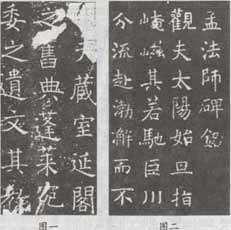 天蔵室延閣
之舊典蓬萊宛
委之遺文其
图一
孟法師碑
觀夫太陽始旦指
崦嵫其若馳巨川
分流赴渤澥而不
图二